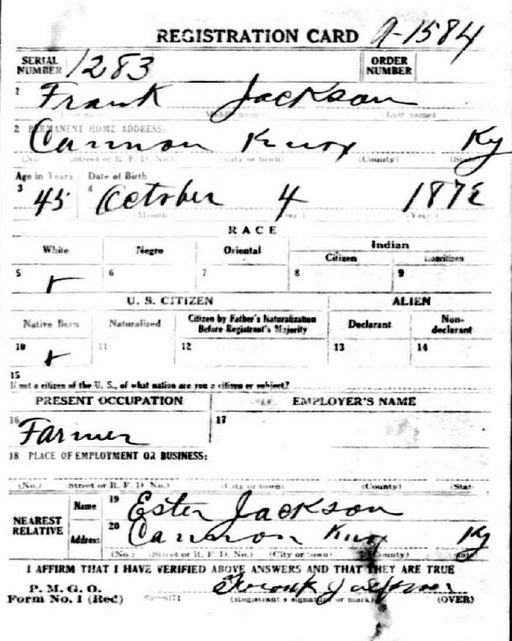 REGISTRATION CARD A-1584
SERIAL NUMBER 1283 ORDER NUMBER
1 Frank Jackson
(First name) (Middle name) (Last name)
2 PERMANENT HOME ADDRESS:
Cannon Knox Ky
(No.) (Street or R. F. D. No.) (City or town) (County) (State)
Age in Years Date of Birth
3 45 4 October 4 1872
(Month) (Day) (Year)
RACE
White Negro Oriental Indian
Citizen Noncitizen
5 6 7 8 9
U. S. CITIZEN ALIEN
Native Born Naturalized Citizen by Father's Naturalization Before Registrant's Majority Declarant Non-declarant
10 11 12 13 14
15
If not a citizen of the U. S., of what nation are you a citizen or subject?
PRESENT OCCUPATION EMPLOYER'S NAME
16 Farmer 17
18 PLACE OF EMPLOYMENT OR BUSINESS:
(No.) (Street or R. F. D. No.) (City or town) (County) (State)
NEAREST RELATIVE Name 19 Ester Jackson
Address 20 Cannon Knox Ky
(No.) (Street or R. F. D. No.) (City or town) (County) (State)
I AFFIRM THAT I HAVE VERIFIED ABOVE ANSWERS AND THAT THEY ARE TRUE
P. M. G. O.
Form No. 1 (Red) Frank Jackson
(Registrant's signature or mark) (OVER)